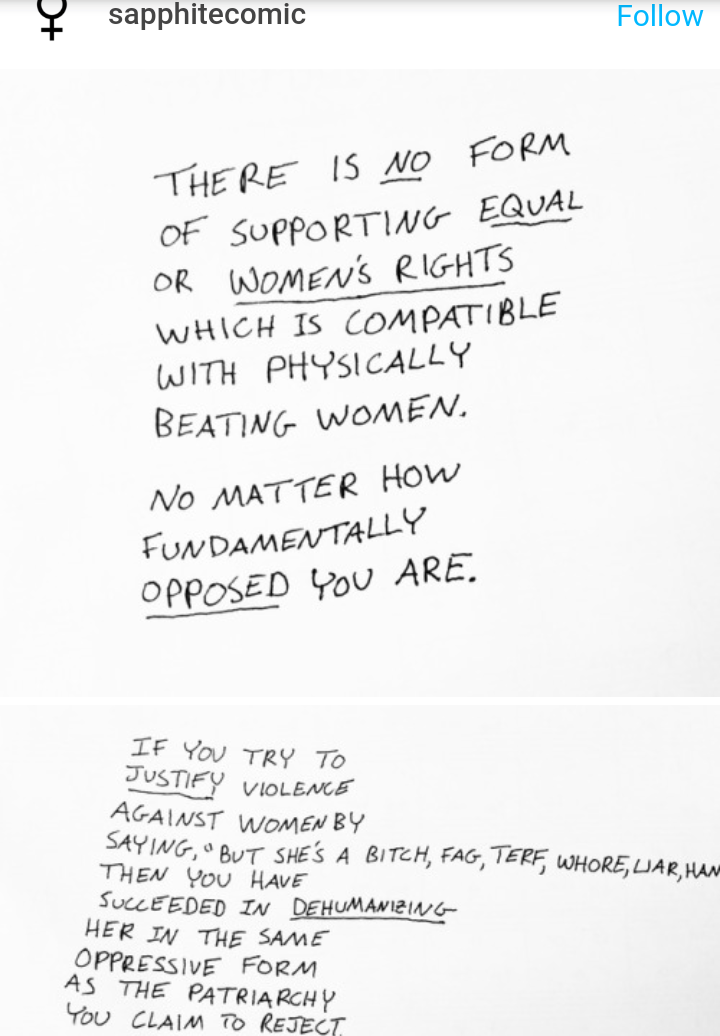 sapphitecomic Follow
THERE IS NO FORM
OF SUPPORTING EQUAL
OR WOMEN'S RIGHTS
WHICH IS COMPATIBLE
WITH PHYSICALLY
BEATING WOMEN.
NO MATTER HOW
FUNDAMENTALLY
OPPOSED YOU ARE.
IF YOU TRY TO
JUSTIFY VIOLENCE
AGAINST WOMEN BY
SAYING, "BUT SHE'S A BITCH, FAG, TERF, WHORE, LIAR, HAN
THEN YOU HAVE
SUCCEEDED IN DEHUMANIZING
HER IN THE SAME
OPPRESSIVE FORM
AS THE PATRIARCHY
YOU CLAIM TO REJECT